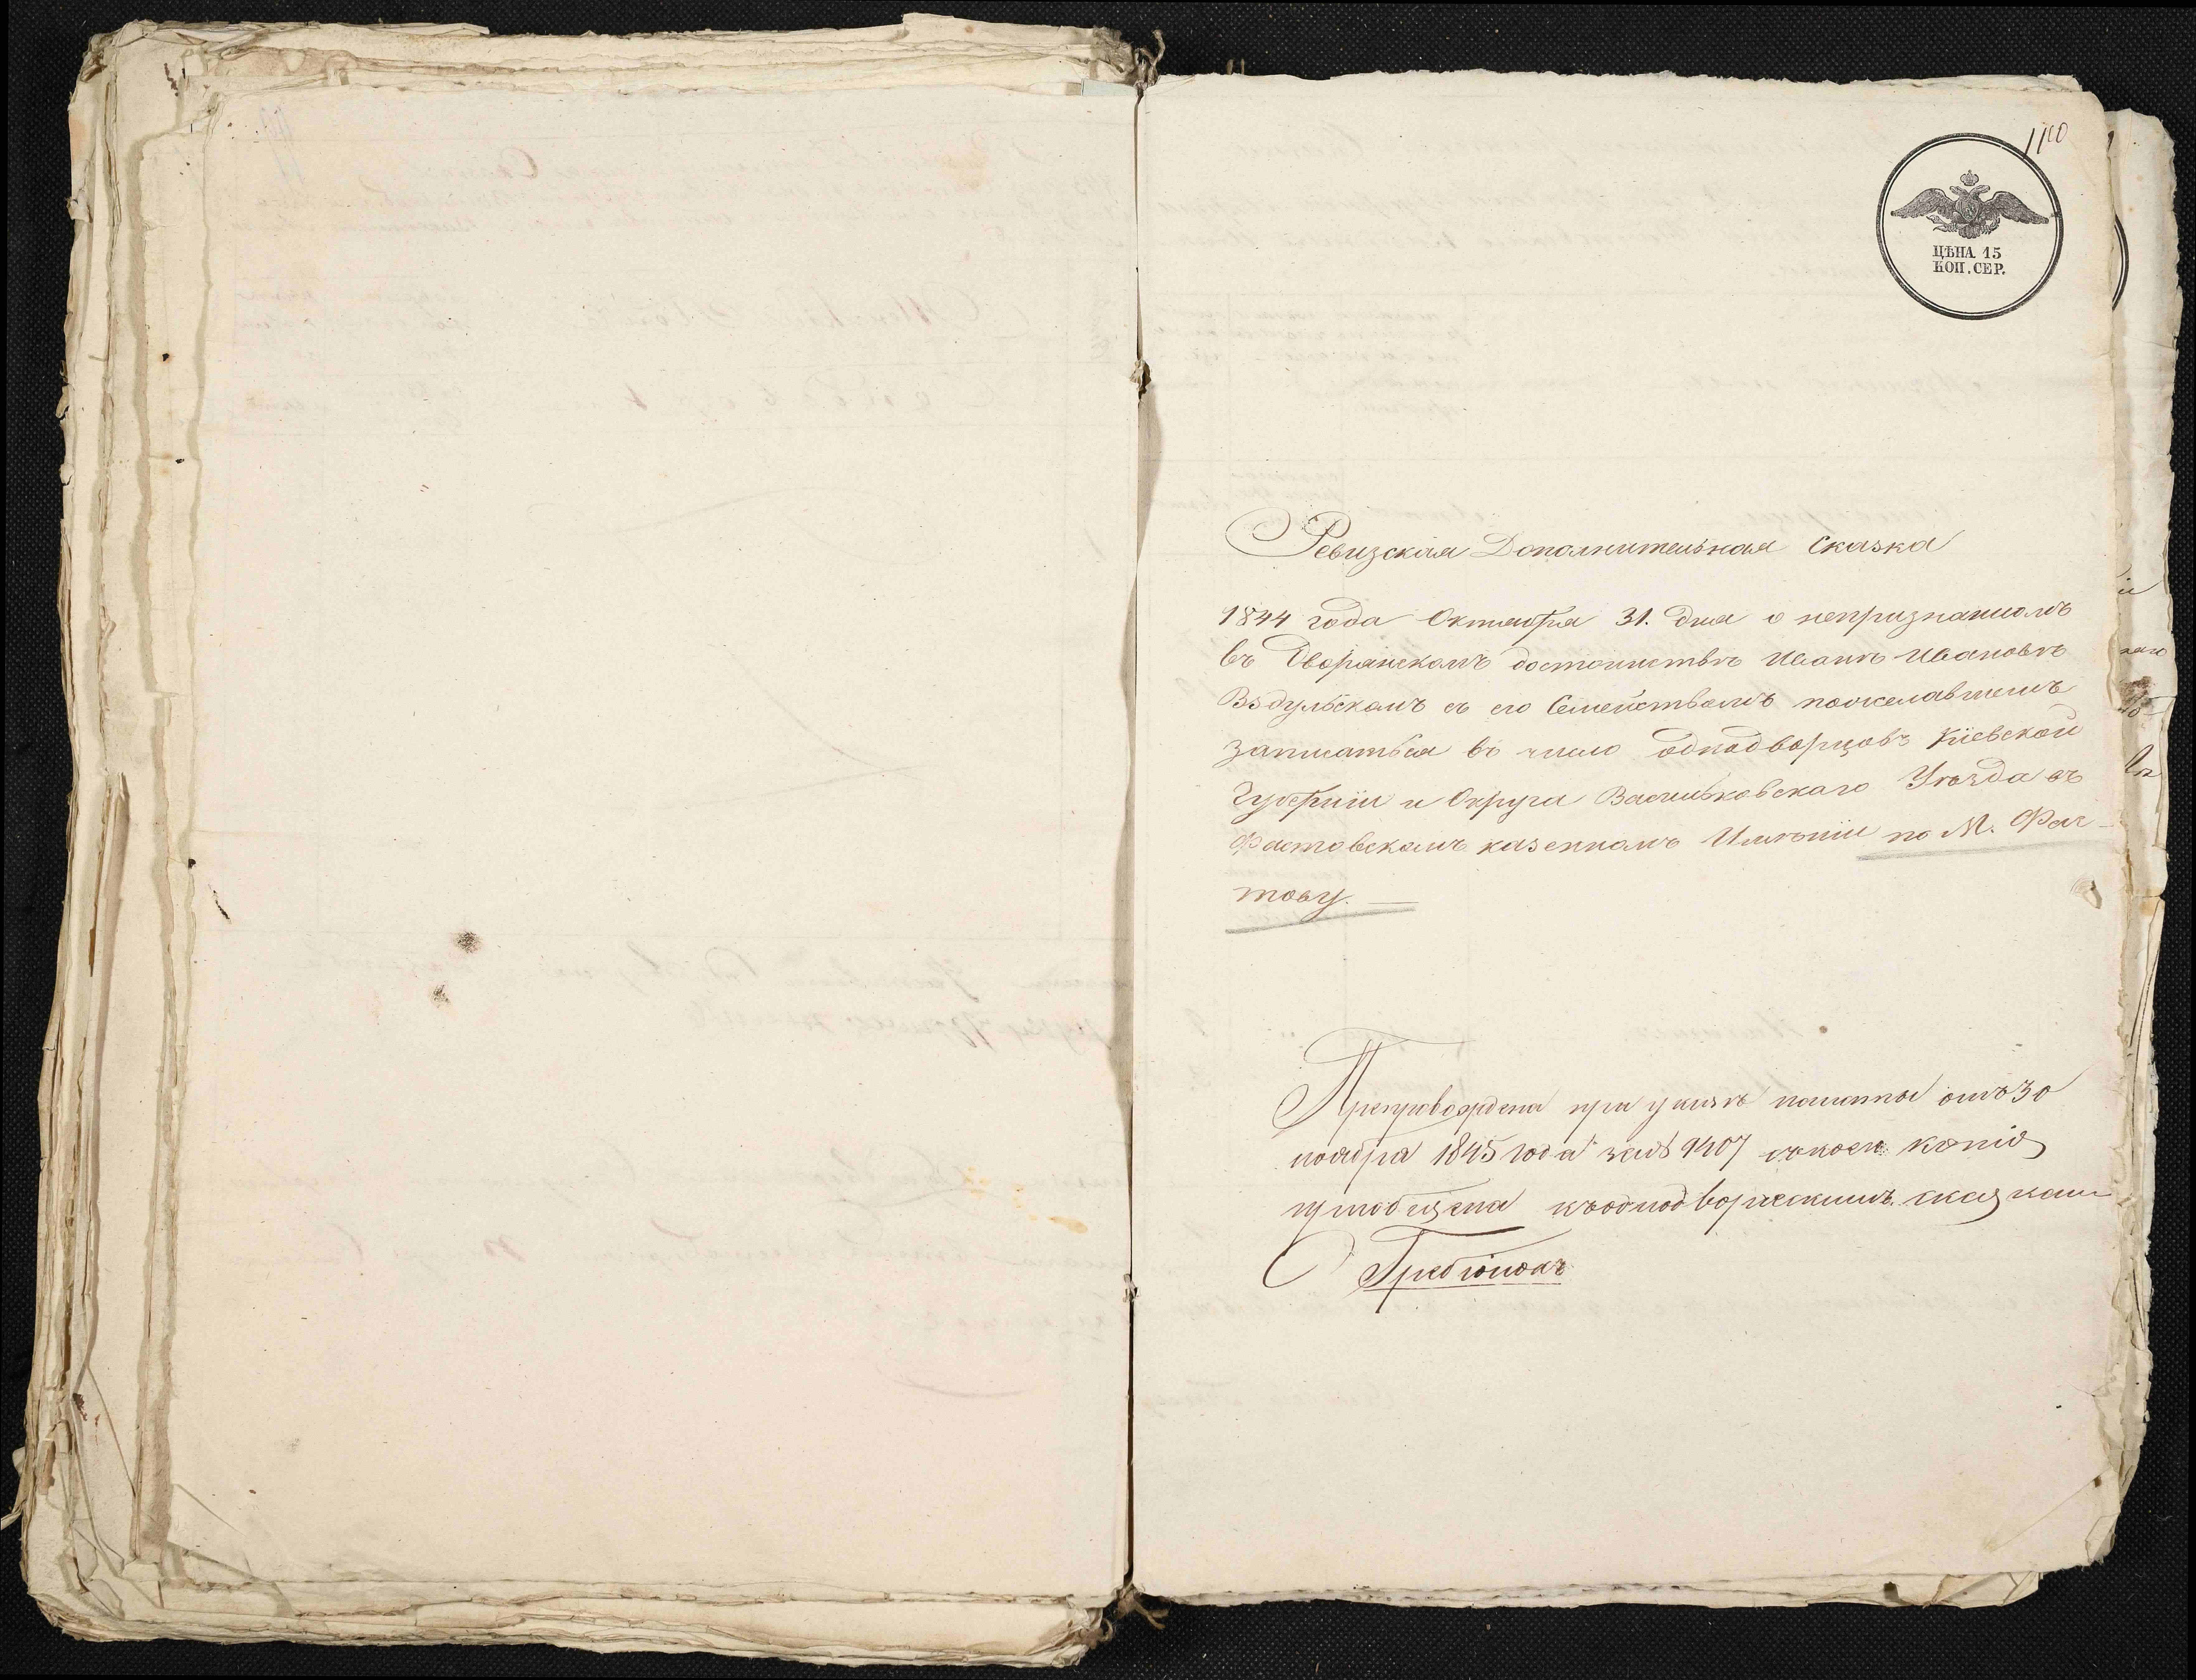 1100
ЦѢНА 15
КОП. СЕР.
Ревизская Дополнительная Сказка
1844 года Октября 31. дня о непризнанномъ
въ Дворянскомъ достоинствѣ Иванѣ Ивановѣ
Вздульскомъ съ его Семействомъ пожелавшемъ
записаться въ число однодворцовъ Кіевской
Губерніи и Округа Васильковскаго Уѣзда въ
Фастовскомъ казенномъ Имѣніи по М. Фас-
тову.
Препровождена при указѣ палаты отъ 30
ноября 1845 года за № 9407 съ коего копія
пріобщена къ однодворческимъ сказкамъ